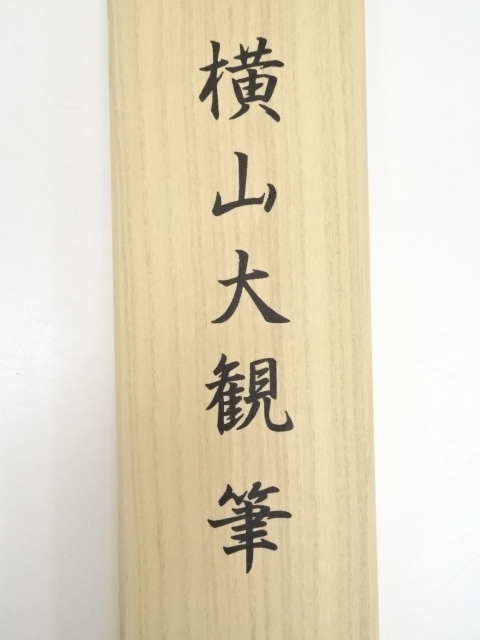 横山大観筆